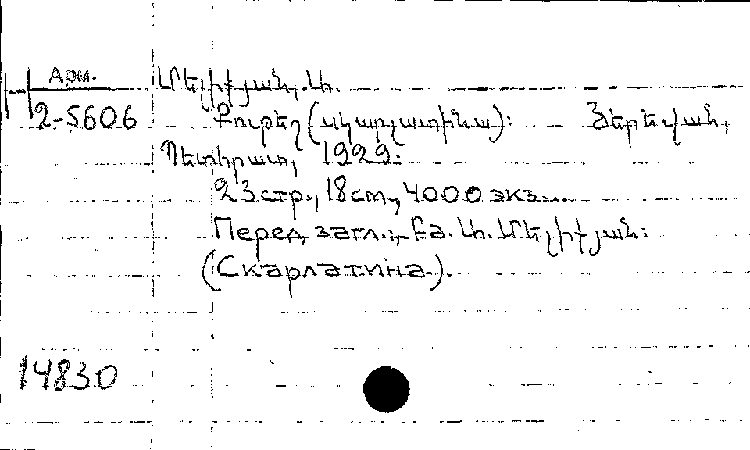 Арм.
2-5606
Մելիքյան, Ս.
Քութեշ (սկարլատինա): Յերեվան,
Պետհրատ, 1929:
23 стр., 18 cm, 4000 экз.
Перед загл.: Բժ. Ս. Մելիքյան:
(Скарлатина).
14830